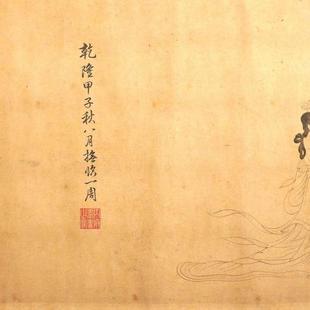 乾隆甲子秋八月撫臨一周